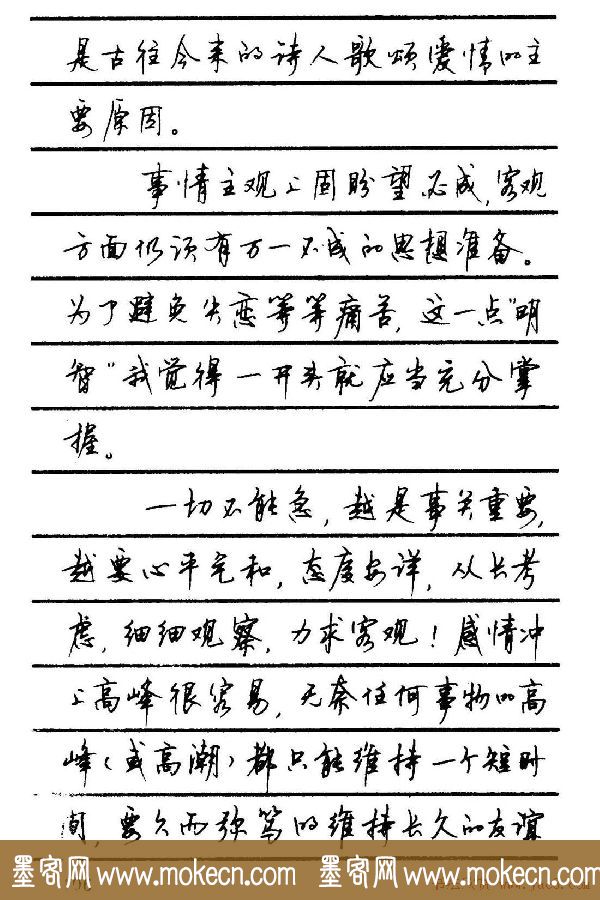 是古往今来的诗人歌颂爱情的主
要原因。
事情主观上固盼望必成,客观
方面仍须有万一不成的思想准备。
为了避免失恋等等痛苦,这一点“明
智”我觉得一开头就应当充分掌
握。
一切不能急,越是事关重要,
越要心平气和,态度安详,从长考
虑,细细观察,力求客观!感情冲
上高峰很容易,无奈任何事物的高
峰(或高潮)都只能维持一个短时
间,要久而弥笃的维持长久的友谊
墨客网 www.mokecn.com 墨客网 www.mokecn.com